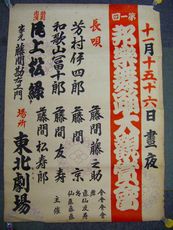 第一回
十一月十五十六日 晝夜
邦楽舞踊大鑑賞会
長唄
芳村伊四郎
和歌山富十郎
藤間藤之助
藤間京
藤間友寿
藤間松寿郎
尾上松緑
家元 藤間勘右エ門
場所 東北劇場
主催